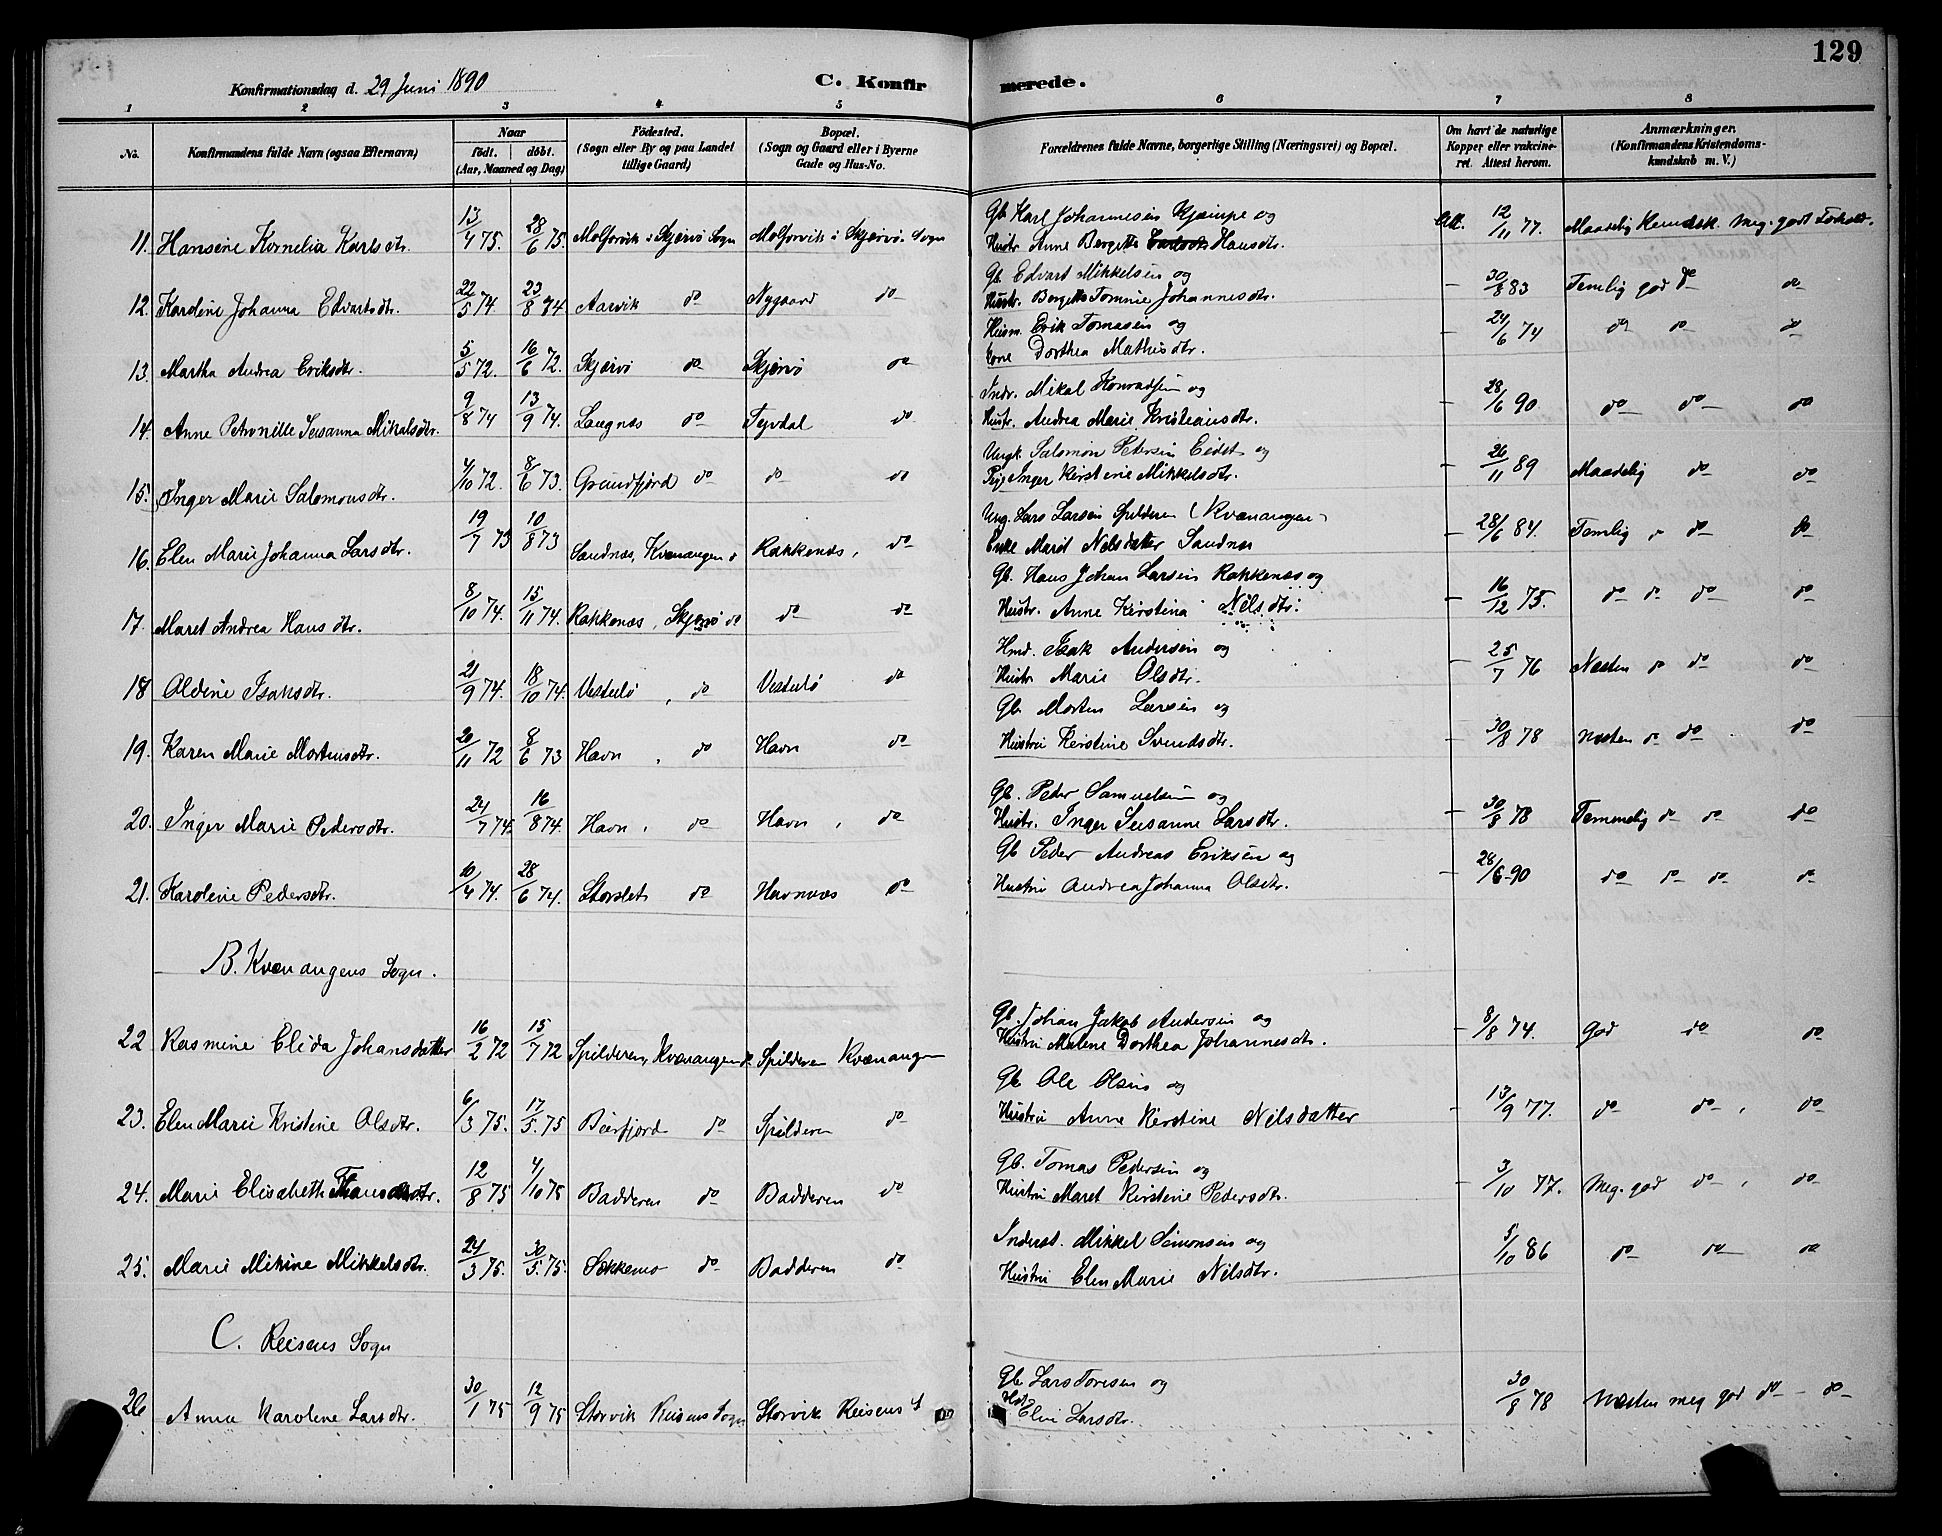 129
Konfirmationsdag d. 29 Juni 1890 C. Konfirmerede.
1 2 3 4 5 6 7 8
No. Konfirmandens fulde Navn (ogsaa Efternavn) Naar født. døbt. (Aar, Maaned og Dag) Fødested. (Sogn eller By og paa Landet tillige Gaard) Bopæl. (Sogn og Gaard eller i Byerne Gade og Hus-No. Forældrenes fulde Navne, borgerlige Stilling (Næringsvei) og Bopæl. Om havt de naturlige Kopper eller vakcineret. Attest herom. Anmærkninger. (Konfirmandens Kristendomskundskab m. V.)
Gb. Karl Johannesen Kjæmpe og
11. Hansine Kornelia Karlsdtr. 13/4 75. 28/6 75. Molforvik i Skjervø Sogn Molforvik i Skjervø Sogn Hustr. Anne Bergette Hansdtr. Att. 12/11 77. Maadelig Kundsk. meg. godt Forhold.
Gb. Edvart Mikkelsen og
12. Kardine Johanna Edvartsdtr. 22/5 74. 23/8 74 Aarvik do Nygaard do Hustr. Bergette Tomine Johannesdtr. - 30/8 83 Temlig god do do
Husm. Erik Tomasen og
13. Martha Andrea Eriksdtr. 5/5 72. 16/6 72. Skjervø do Skjervø do Kone Dorthea Mathisdtr. - 24/6 74 do do do
Indr. Mikal Konradsen og
14. Anne Petronille Susanna Mikalsdtr. 9/8 74 13/9 74. Laugnæs do Tejvdal do Hustr. Andrea Marie Kristiansdtr. - 28/6 90 do do do
Ungk. Salomon Petersen Eidet og
15. Inger Marie Salomonsdtr. 4/10 72. 8/6 73. Grundfjord do do do Pige Inger Kirstine Mikkelsdtr. - 26/11 89 Maadelig do do
Ung. Lars Larsen Spilderen (Kvænangen)
16. Elen Marie Johanna Larsdtr. 19/7 73 10/8 73 Sandnæs, Kvænangen Rakkenæs, do Enke Marit Nilsdatter Sandnæs - 28/6 84. Temlig do do
Gb. Hans Johan Larsen Rakkenæs og
17. Maret Andrea Hansdtr. 8/10 74. 15/11 74. Rakkenæs, Skjervø do do do Hustr. Anne Kirstina Nilsdtr. - 16/12 75. do do do do
Hmd. Isak Andersen og
18 Aldine Isaksdtr. 21/9 74. 18/10 74. Vesterø, do Vesterø do Hustr. Marie Olsdtr. - 25/7 76 Næsten do do do
Gb. Morten Larsen og
19. Karen Marie Mortensdtr. 20/11 72 8/6 73 Havn, do Havn do Hustru Kirstine Svendsdtr. - 30/8 78 næsten do do do
Gb. Peder Samuelsen og
20. Inger Marie Pedersdtr. 24/7 74. 16/8 74. Havn, do Havn, do Hustr. Inger Susanne Larsdtr. - 30/8 78 Temmelig do do do
Gb Peder Andreas Eriksen og
21. Karoline Pedersdtr. 10/4 74. 28/6 74. Storslet do Havnnæs do Hustru Andrea Johanna Olsdtr. - 28/6 90 do do do do
B. Kvænangens Sogn.
Gb. Johan Jakob Andersen og
22 Rasmine Elida Johansdatter 16/2 72 15/7 72 Spilderen, Kvænangen Spilderen Kvænangen Hustru Malene Dorthea Johannesdtr. - 8/8 74. god do do
Gb. Ole Olsen og
23. Elen Marie Kristine Olsdtr. 6/3 75. 17/5. 75 Burfjord do Spilderen do Hustru Anne Kirstine Nilsdatter - 13/9 77. do do, do
Gb. Tomas Pedersen og
24. Marie Elisabeth 12/8 75 4/10 75 Badderen do Badderen do Hustru Maret Kirstine Pedersdtr. - 3/10 77. Meg. god do, do
Inderst. Mikkel Simonsen og
25. Marie Mikine Mikkelsdtr. 24/3 75. 30/5. 75. Sekkemo do Badderen do Hustru Elen Marie Nilsdtr. 5/10 86 do do do
C. Reisens Sogn
Gb. Lars Toresen og
26 Anna Karoline Larsdtr. 30/1 75 12/9 75 Storvik Reisens Sogn Storvik Reisens S Hst. Elen Larsdtr. 30/8 78 Næsten meg god do - do